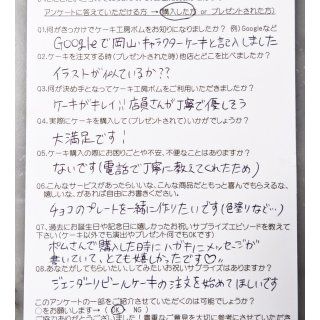 アンケートに答えていただける方 → 購入した方 or プレゼントされた方)
Q1.何がきっかけでケーキ工房ボムをお知りになりましたか? 例)Googleなど
Googleで岡山、キャラクターケーキと記入しました
Q2.ケーキを注文する時(プレゼントされた時)他店とどこを比べましたか?
イラストが似ているか??
Q3.何が決め手となってケーキ工房ボムをご利用いただきましたか?
ケーキがキレイ!!店員さんが丁寧で優しそう
Q4.実際にケーキを購入して(プレゼントされて)いかがでしょうか?
大満足です!
Q5.ケーキ購入の際にお困りごとや不安、不便なことはありますか?
ないです(電話で丁寧に教えてくれたため)
Q6.こんなサービスがあったらいいな、こんな商品だともっと喜んでもらえるな、
嬉しいな、があれば自由にお書きください。
チョコのプレートを一緒に作りたいです(色塗りなど…)
Q7、過去にお誕生日や記念日に嬉しかったお祝いサプライズエピソードを教えて
下さい(ケーキ以外でも演出やプレゼント何でもOKです)
ボムさんで購入した時にハガキにメッセージが
書いていて、とても嬉しかったです♡
Q8.あなたがしてもらいたい、してみたいお祝いサプライズはありますか?
ジェンダーリビールケーキの注文を始めてほしいです
このアンケートの一部をご紹介させていただくのは可能でしょうか?
○をお願いします→ ( OK NG )